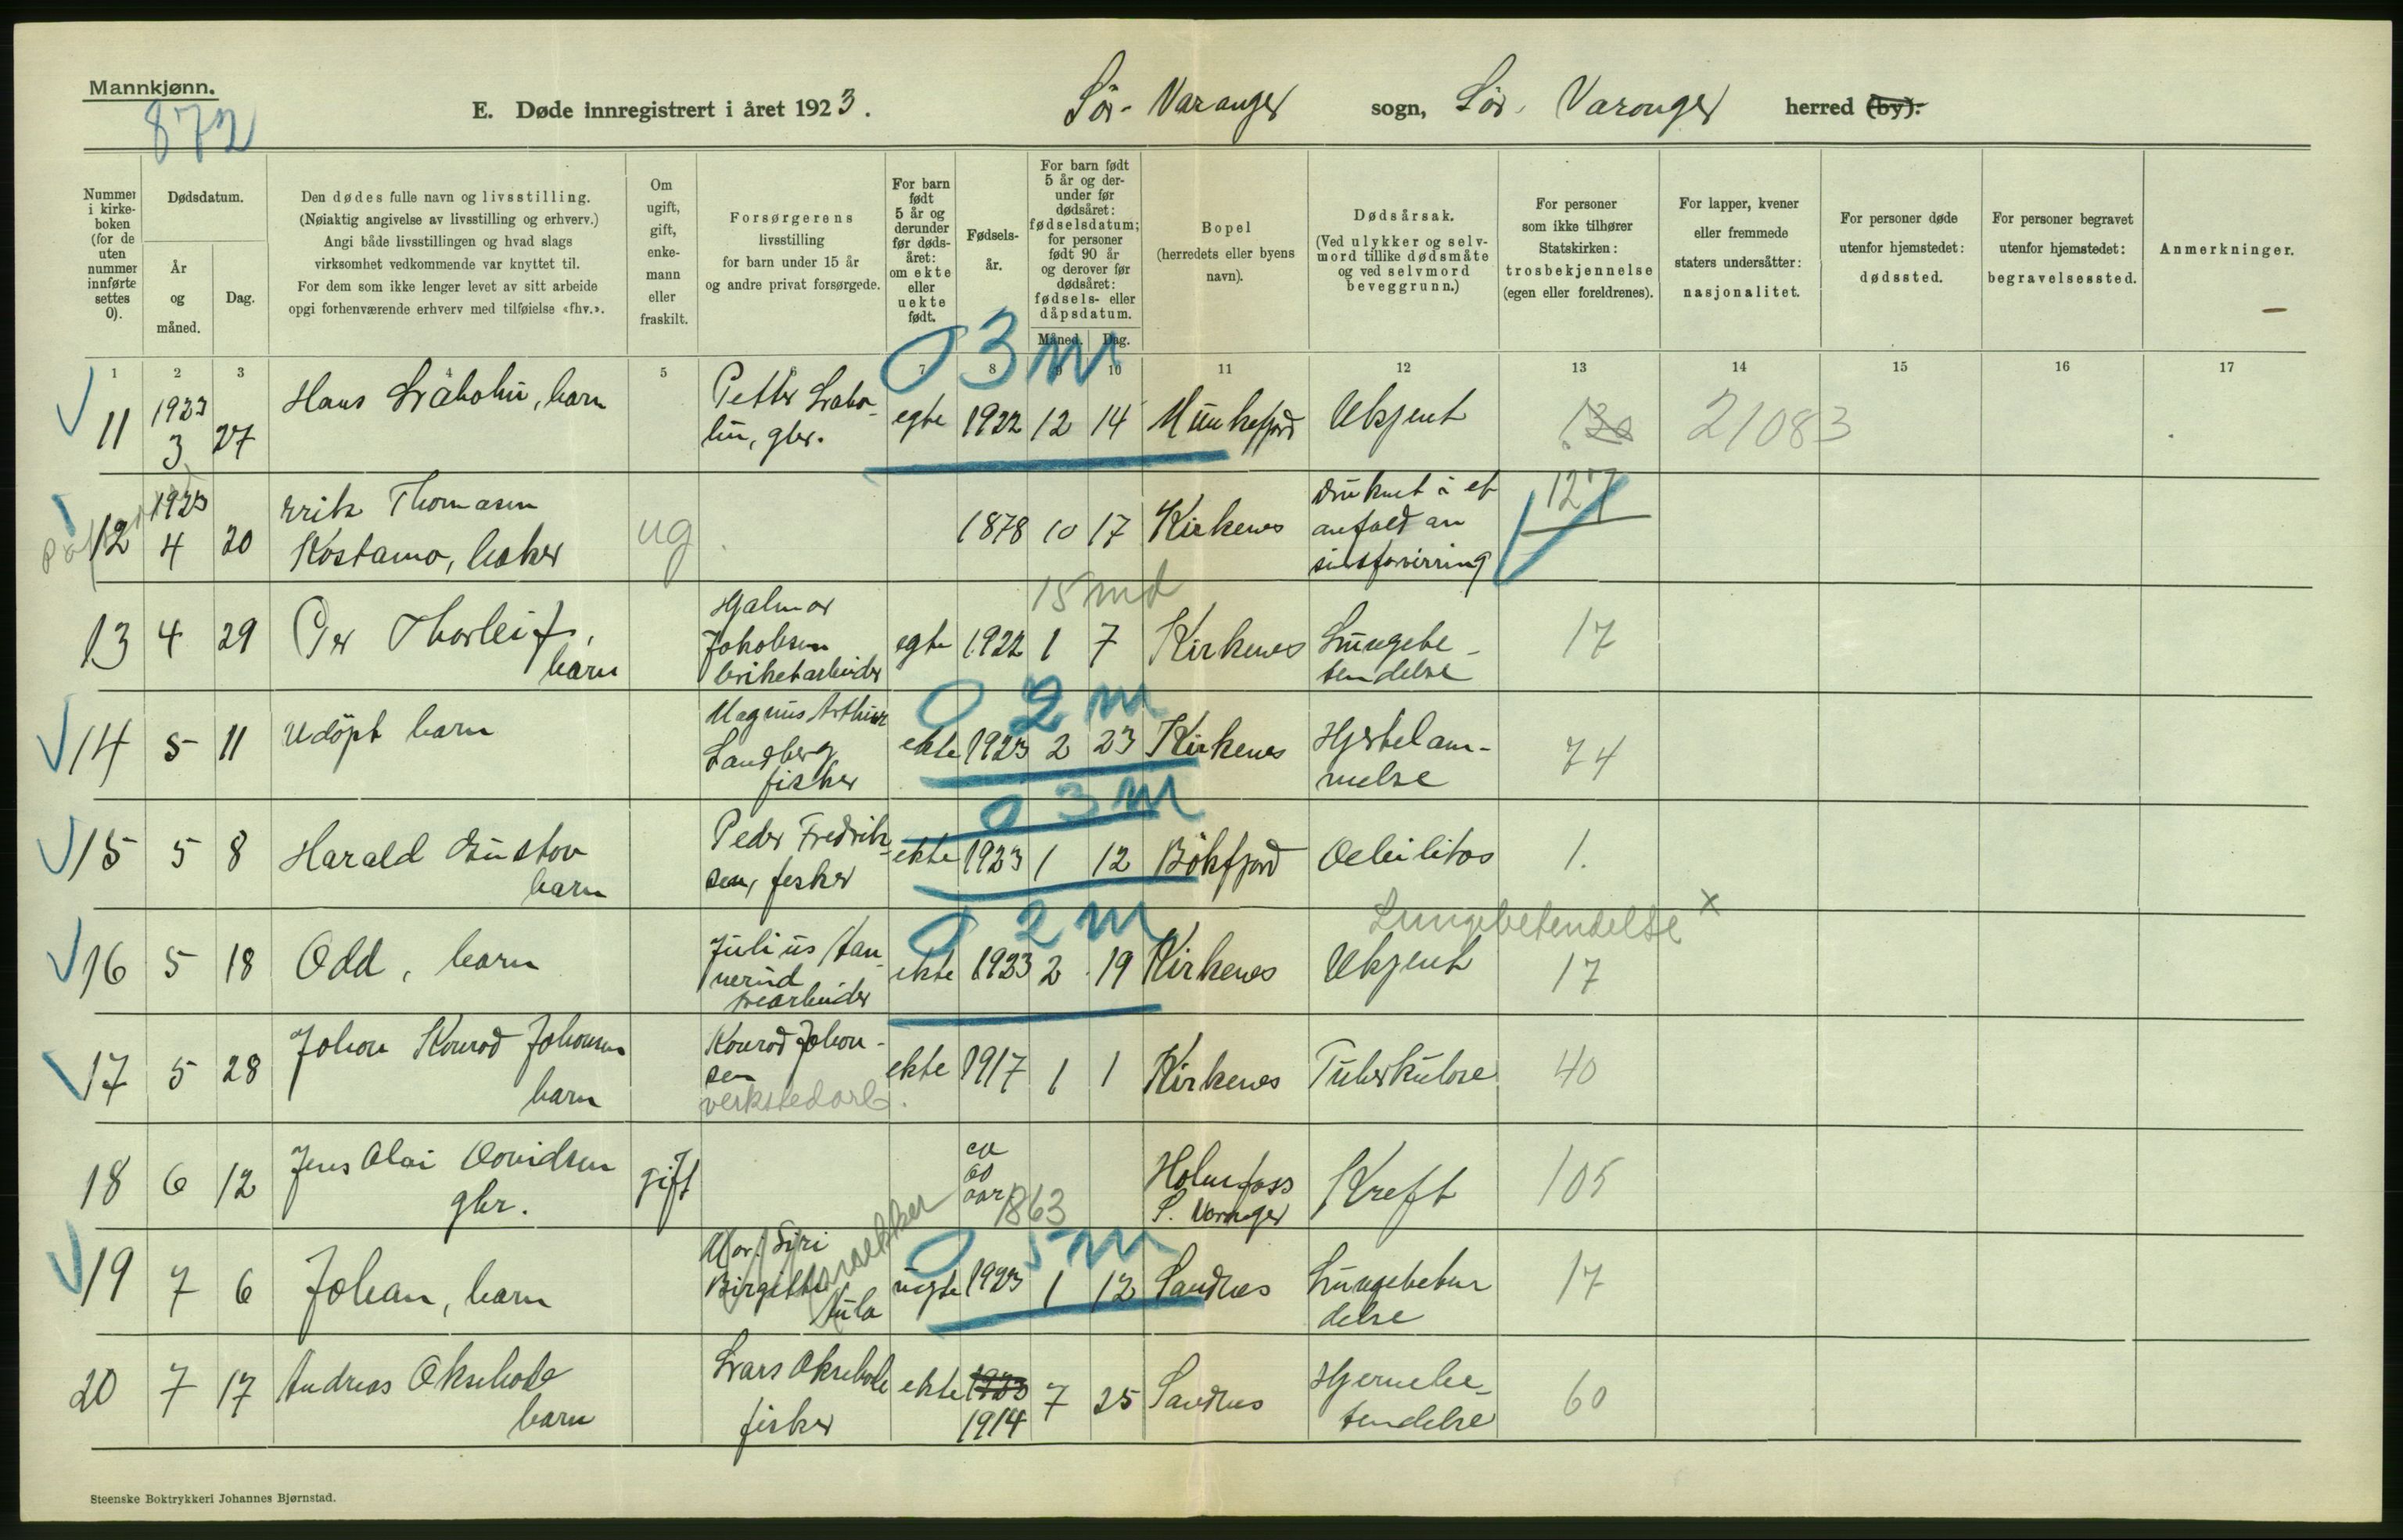 Mannkjønn.
872
E. Døde innregistrert i året 1923.
Sör-Varanger sogn, Sör-Varanger herred (by).
Nummer i kirkeboken (for de uten nummer innførte settes 0).
Dødsdatum.
År og måned.
Dag.
Den dødes fulle navn og livsstilling.
(Nøiaktig angivelse av livsstilling og erhverv.)
Angi både livsstillingen og hvad slags
virksomhet vedkommende var knyttet til.
For dem som ikke lenger levet av sitt arbeide
opgi forhenværende erhverv med tilføielse «fhv.».
Om ugift, gift, enkemann eller fraskilt.
Forsørgerens
livsstilling
for barn under 15 år
og andre privat forsørgede.
For barn født 5 år og derunder før dødsåret: om ekte eller uekte født.
Fødselsår.
For barn født 5 år og derunder før dødsåret: fødselsdatum; for personer født 90 år og derover før dødsåret: fødsels- eller dåpsdatum.
Måned. Dag.
Bopel
(herredets eller byens
navn).
Dødsårsak.
(Ved ulykker og selvmord tillike dødsmåte og ved selvmord beveggrunn.)
For personer
som ikke tilhører
Statskirken:
trosbekjennelse
(egen eller foreldrenes).
For lapper, kvener
eller fremmede
staters undersåtter:
nasjonalitet.
For personer døde
utenfor hjemstedet:
dødssted.
For personer begravet
utenfor hjemstedet:
begravelsessted.
Anmerkninger.
1 2 3 4 5 7 8 9 10 11 12 13 14 15 16 17
0 3 m
11 1923 3 27 Hans barn Petter gbr. egte 1922 12 14 Munkefjord Ukjent 130 21083
12 1923 4 20 Erik Thomasen Kostamo, baker ug 1878 10 17 Kirkenes Druknet i et anfald av sinsforvirring 127
15 md
13 4 29 Per Thorleif, barn Hjalmar Jakobsen briketarbeider egte 1922 1 7 Kirkenes Lungebetendelse 17
0 2 m
14 5 11 Udöpt barn Magnus Arthur Sandberg fisker ekte 1923 2 23 Kirkenes Hjertelammelse 74
0 3 m
15 5 8 Harald Gustav barn Peder Fredriksen, fisker ekte 1923 1 12 Bökfjord 1.
0 2 m
Lungebetendelse x
16 5 18 Odd, barn Julius ekte 1923 2 19 Kirkenes Ukjent 17
17 5 28 Johan Konrad Johansen barn Konrad Johansen verkstedarb. ekte 1917 1 1 Kirkenes Tuberkulose 40
18 6 12 Jens Olai gbr. gift ca 60 aar 1863 Holmfoss S. Varanger Kreft 105
0 5 m
19 7 6 Johan, barn Mor: Siri Birgitte uegte 1923 1 12 Sandnes Lungebetendelse 17
20 7 17 Andreas barn Lars fisker ekte 1923 1914 7 25 Sandnes Hjernebetendelse 60
Steenske Boktrykkeri Johannes Bjørnstad.